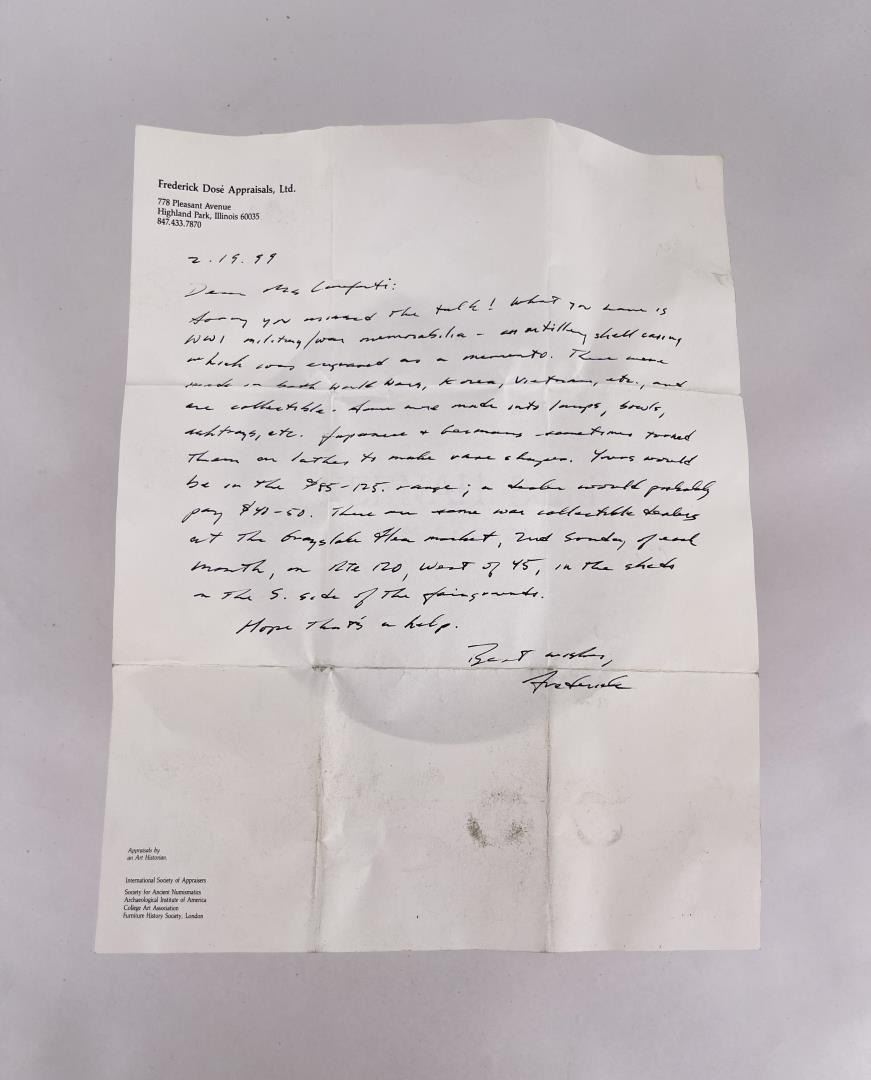 Frederick Dosé Appraisals, Ltd.
778 Pleasant Avenue
Highland Park, Illinois 60035
847.433.7870
2.19.99
Dear Ms Conforti:
Sorry you missed the talk! What you have is
WWI military/war memorabilia - an artillery shell casing
which was engraved as a memento. These were
made in both World Wars, Korea, Vietnam, etc., and
are collectible. Some were made into lamps, bowls,
ashtrays, etc. Japanese + Germans sometimes turned
them on lathes to make vase shapes. Yours would
be in the $85-125. range; a dealer would probably
pay $40-50. There are some war collectible dealers
at the Grayslake flea market, 2nd Sunday of each
month, on Rte 120, west of 45, in the sheds
on the S. side of the fairgrounds.
Hope that's a help.
Best wishes,
Frederick
Appraisals by
an Art Historian.
International Society of Appraisers
Society for Ancient Numismatics
Archaeological Institute of America
College Art Association
Furniture History Society, London